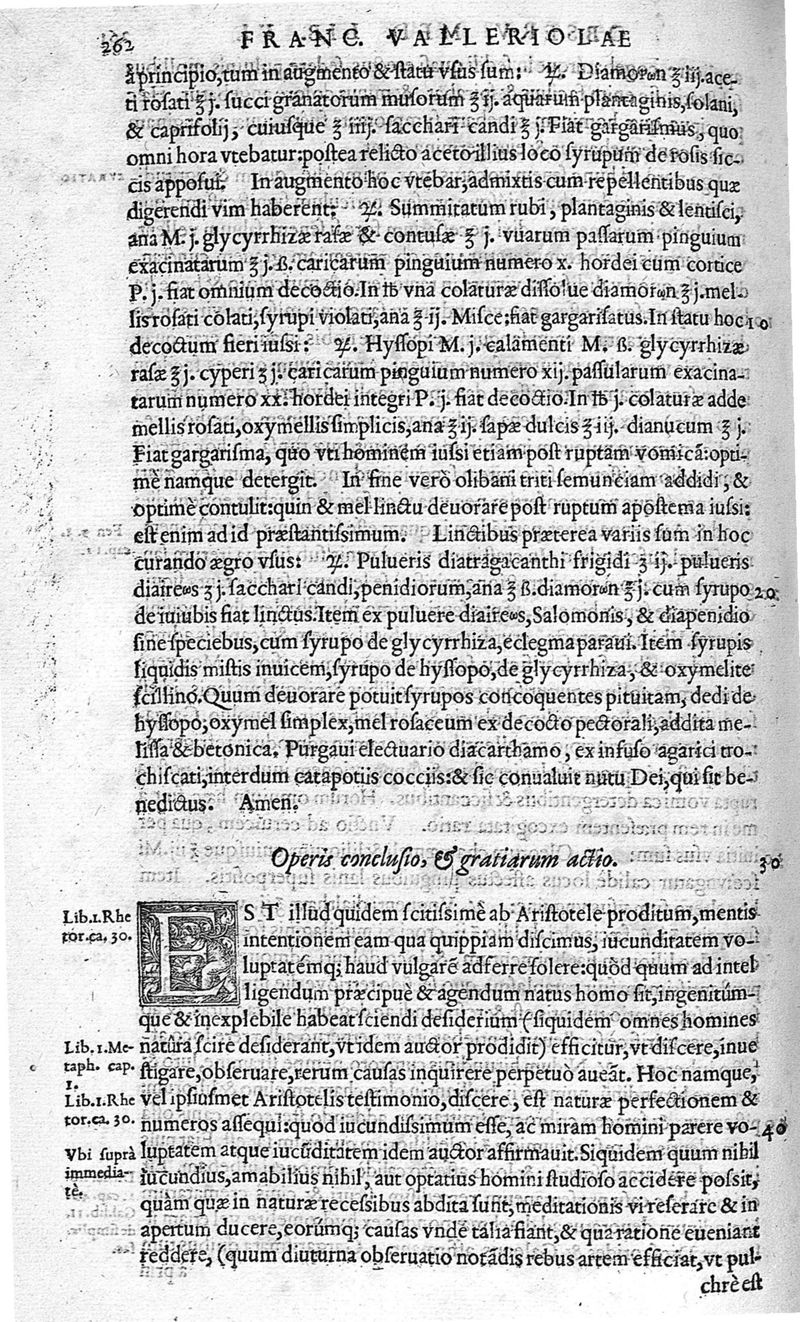 262 FRANC. VALLERIOLAE
à principio, tum in augmento & statu vsus sum: ℞. Diamorωn ℥ iij. ace-
ti rosati ℥ j. succi granatorum musorum ℥ ij. aquarum plantaginis, solani,
& caprifolij, cuiusque ℥ iiij. sacchari candi ℥ j. Fiat gargarismus, quo
omni hora vtebatur: postea relicto aceto illius loco syrupum de rosis sic-
cis apposui. In augmento hoc vtebar, admixtis cum repellentibus quæ
digerendi vim haberent: ℞. Summitatum rubi, plantaginis & lentisci,
ana M. j. glycyrrhizæ rasæ & contusæ ℥ j. vuarum passarum pinguium
exacinatarum ℥ j. ß. caricarum pinguium numero x. hordei cum cortice
P. j. fiat omnium decoctio. In ℔ vna colaturæ dissolue diamorωn ℥ j. mel-
lis rosati colati, syrupi violati, ana ℥ ij. Misce; fiat gargarisatus. In statu hoc 10
decoctum fieri iussi: ℞. Hyssopi M. j. calamenti M. ß. glycyrrhizæ
rasæ ℥ j. cyperi ʒ j. caricarum pinguium numero xij. passularum exacina-
tarum numero xx. hordei integri P. j. fiat decoctio. In ℔ j. colaturæ adde
mellis rosati, oxymellis simplicis, ana ℥ ij. sapæ dulcis ℥ iij. dianucum ℥ j.
Fiat gargarisma, quo vti hominem iussi etiam post ruptam vomicã: opti-
mè namque detergit. In fine verò olibani triti semunciam addidi, &
optimè contulit: quin & mel linctu deuorare post ruptum apostema iussi:
est enim ad id præstantissimum. Linctibus præterea variis sum in hoc
curando ægro vsus: ℞. Pulueris diatragacanthi frigidi ʒ ij. pulueris
diaireωs ʒ j. sacchari candi, penidiorum, ana ℥ ß. diamorωn ℥ j. cum syrupo 20
de iuiubis fiat linctus. Item ex puluere diaireωs, Salomonis, & diapenidio
sine speciebus, cum syrupo de glycyrrhiza, eclegma paraui. Item syrupis
liquidis mistis inuicem, syrupo de hyssopo, de glycyrrhiza, & oxymelite
scillino. Quum deuorare potuit syrupos concoquentes pituitam, dedi de
hyssopo, oxymel simplex, mel rosaceum ex decocto pectorali, addita me-
lissa & betonica. Purgaui electuario diacarthamo, ex infuso agarici tro-
chiscati, interdum catapotiis cocciis: & sic conualuit nutu Dei, qui sit be-
nedictus. Amen.
Operis conclusio, & gratiarum actio. 30
Lib. 1. Rhe
tor. ca. 30.
EST illud quidem scitissimè ab Aristotele proditum, mentis
intentionem eam qua quippiam discimus, iucunditatem vo-
luptatémq; haud vulgarẽ adferre solere: quòd quum ad intel
ligendum præcipuè & agendum natus homo sit, ingenitúm-
que & inexplebile habeat sciendi desiderium (siquidem omnes homines
Lib. 1. Me-
taph. cap.
1.
natura scire desiderant, vt idem auctor prodidit) efficitur, vt discere, inue
stigare, obseruare, rerum causas inquirere perpetuò aueãt. Hoc namque,
Lib. 1. Rhe
tor. ca. 30.
vel ipsiusmet Aristotelis testimonio, discere, est naturæ perfectionem &
numeros assequi: quod iucundissimum esse, ac miram homini parere vo- 40
Vbi suprà
immedia-
tè.
luptatem atque iucũditatem idem auctor affirmauit. Siquidem quum nihil
iucundius, amabilius nihil, aut optatius homini studioso accidere possit,
quàm quæ in naturæ recessibus abdita sunt, meditationis vi reserare & in
apertum ducere, eorúmq; causas vnde talia fiant, & qua ratione eueniant
reddere, (quum diuturna obseruatio notãdis rebus artem efficiat, vt pul-
chrè est